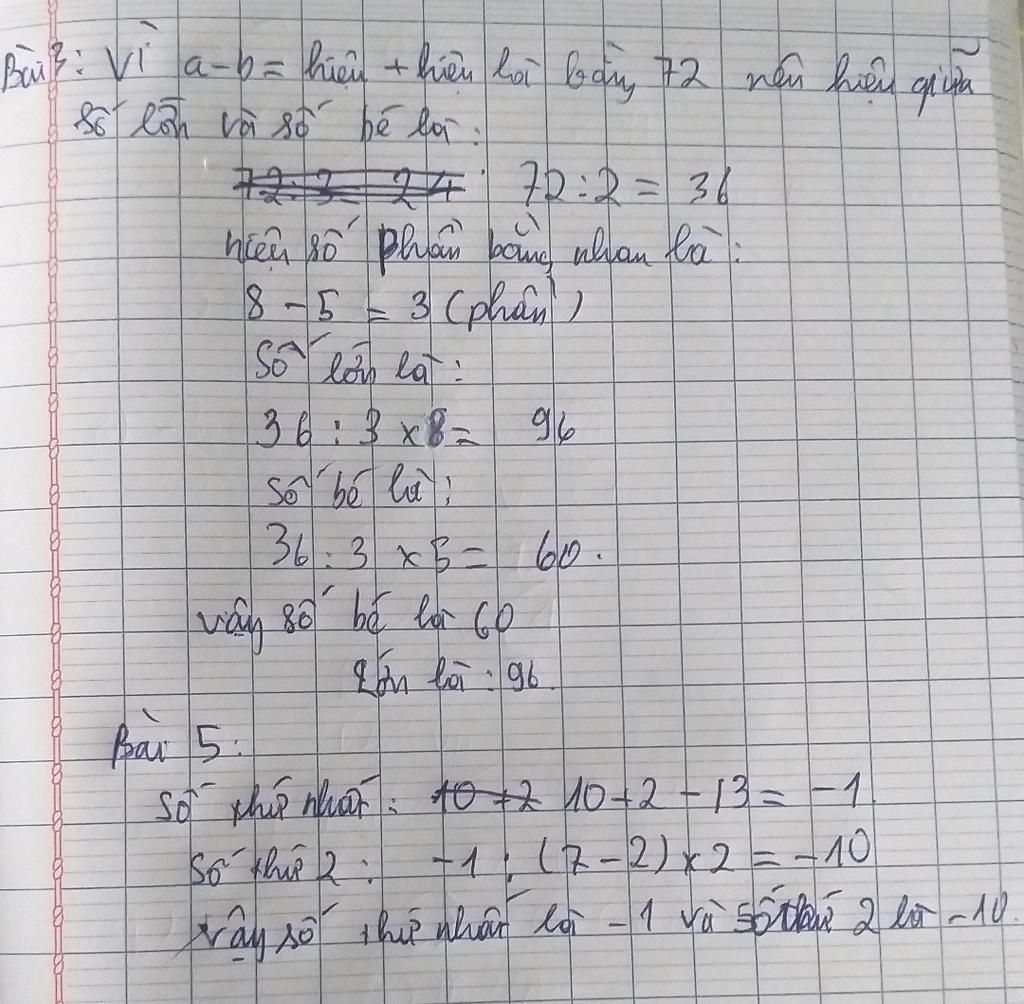 Bài 3: Vì a-b = hiệu + hiệu là bằng 72 nên hiệu giữa
số lớn và số bé là:
72:3 24 72:2 = 36
hiệu số phần bằng nhau là:
8 - 5 = 3 (phần)
Số lớn là:
36 : 3 x 8 = 96
Số bé là:
36 : 3 x 5 = 60.
vậy số bé là 60
lớn là : 96.
Bài 5:
Số thứ nhất: 10+2 10+2-13 = -1
Số thứ 2: -1 : (7-2) x 2 = -10
Vậy số thứ nhất là -1 và số thứ 2 là -10.